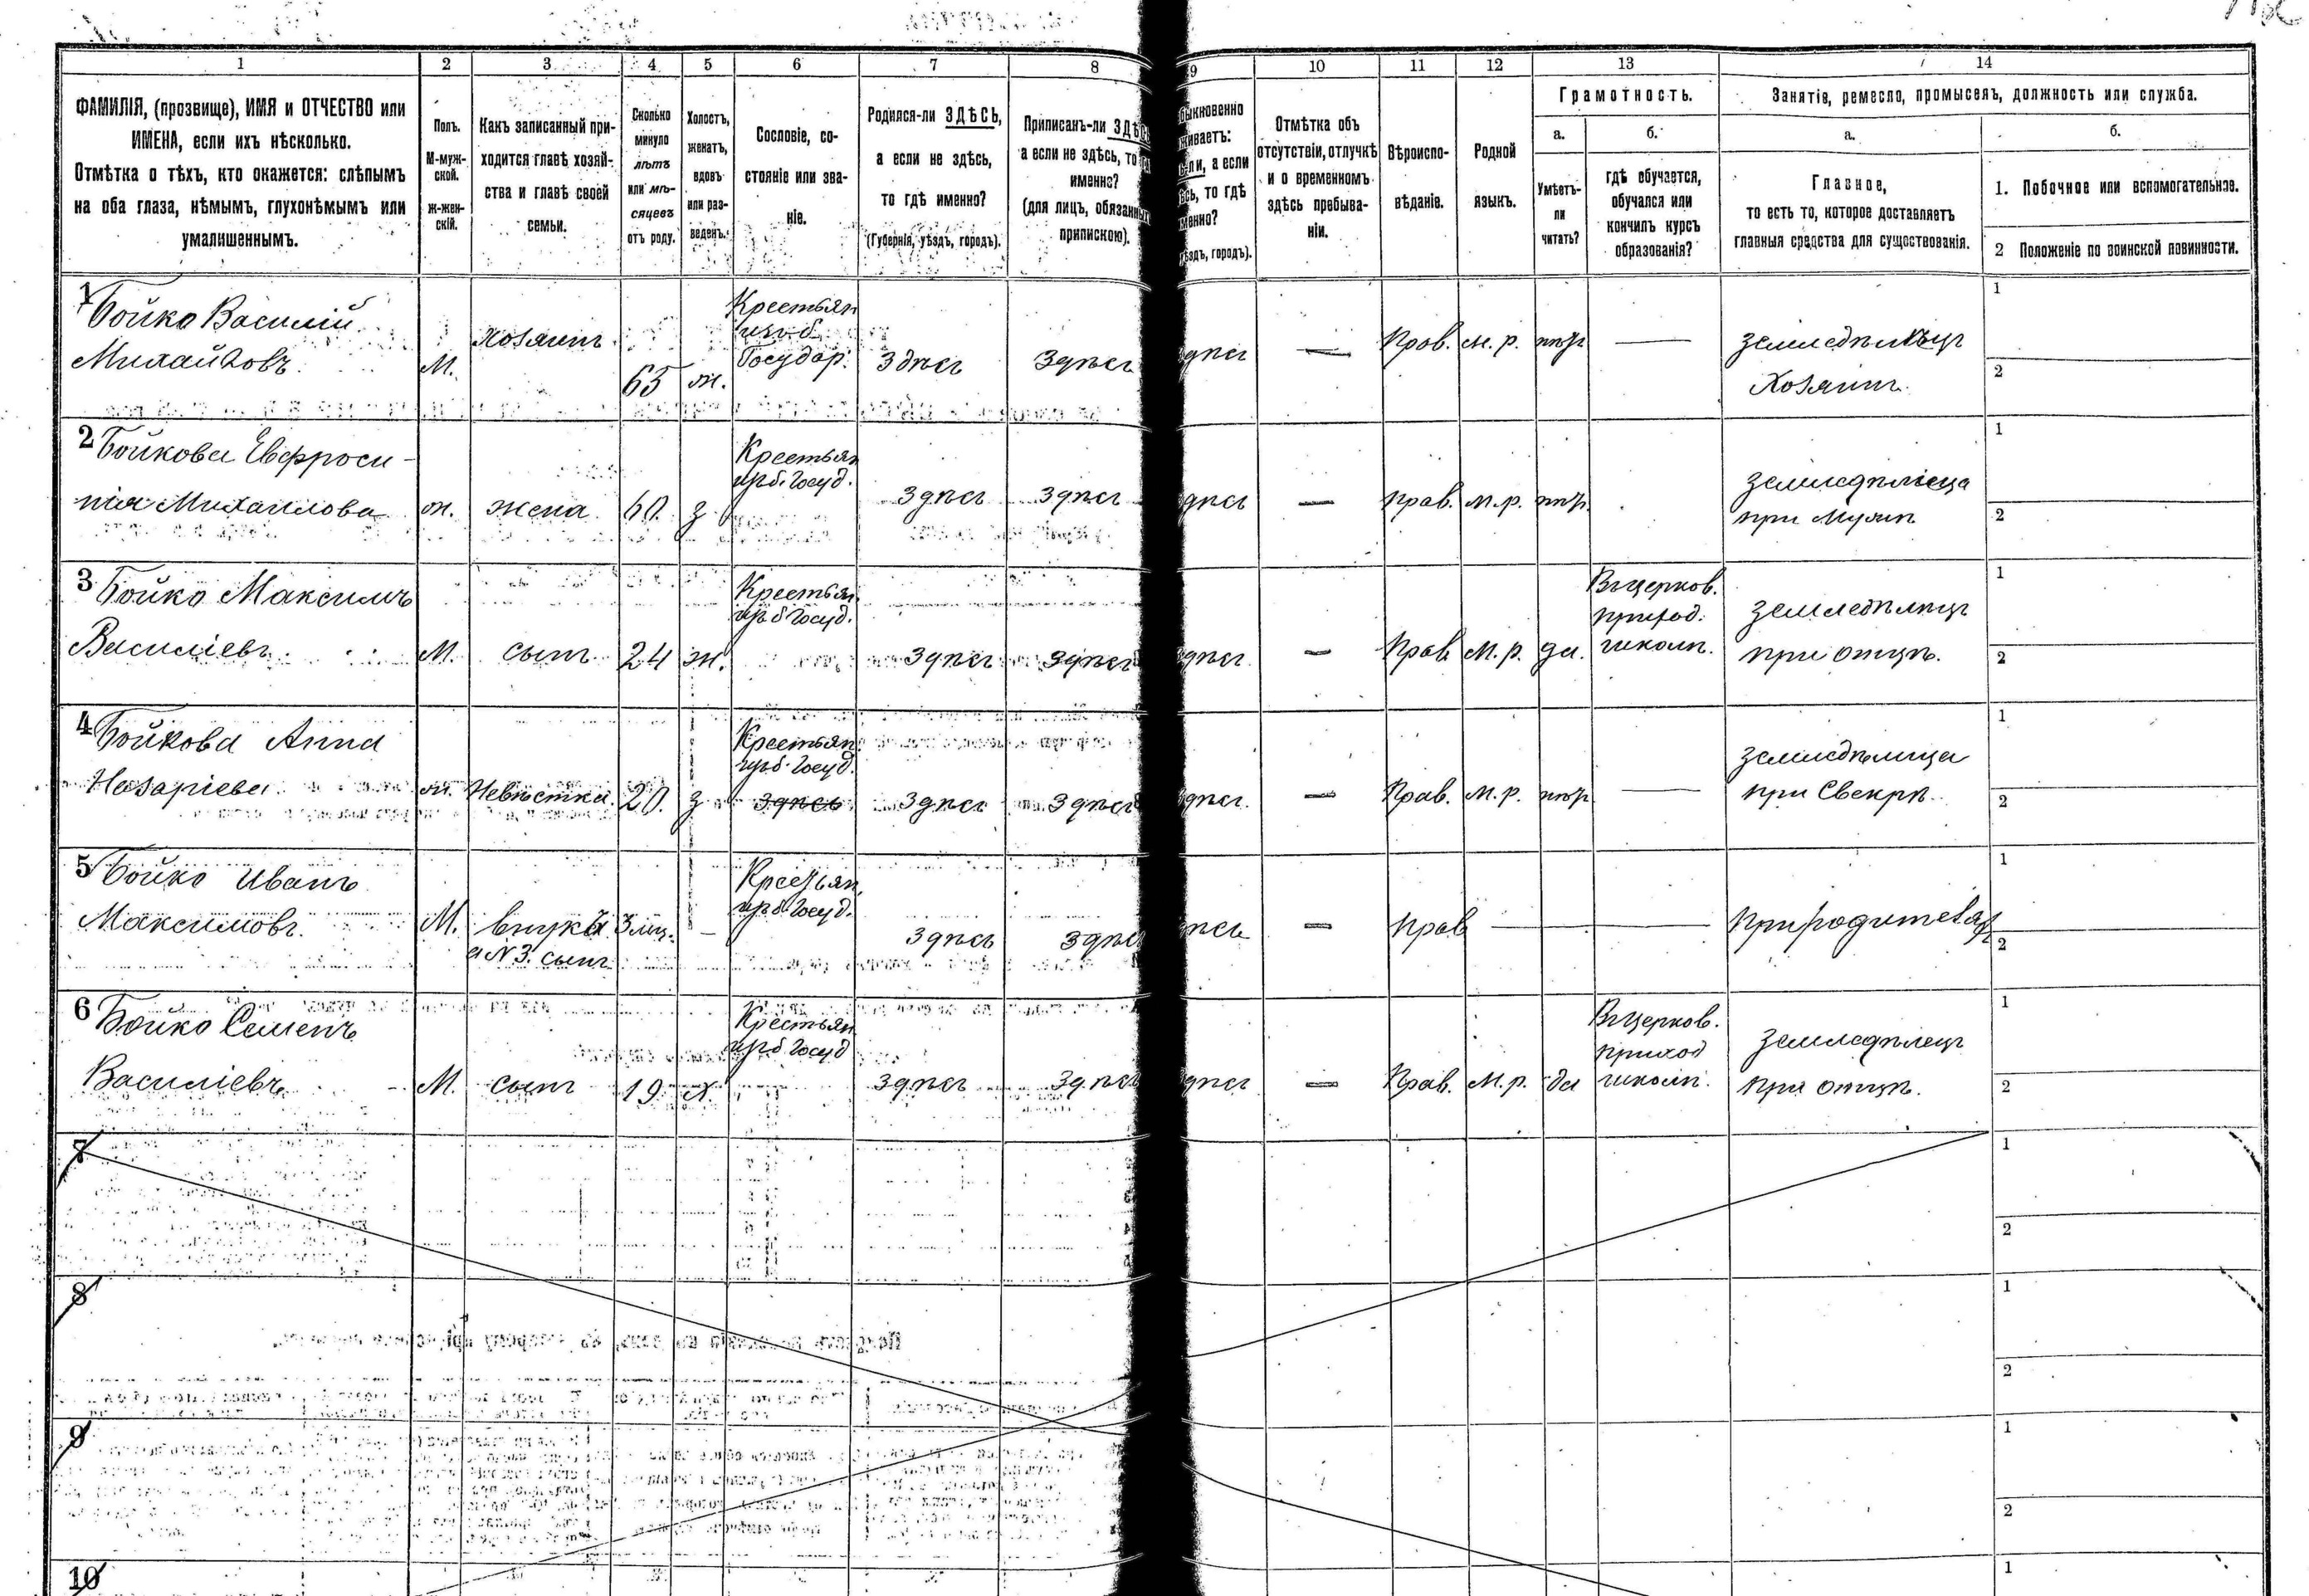 1 2 3 4 5 6 7 8 9 10 11 12 13 14
ФАМИЛІЯ, (прозвище), ИМЯ и ОТЧЕСТВО или
ИМЕНА, если ихъ нѣсколько.
Отмѣтка о тѣхъ, кто окажется: слѣпымъ
на оба глаза, нѣмымъ, глухонѣмымъ или
умалишеннымъ.
Полъ.
М-муж-
ской.
Ж-жен-
скій.
Какъ записанный при-
ходится главѣ хозяй-
ства и главѣ своей
семьи.
Сколько
минуло
лѣтъ
или мѣ-
сяцевъ
отъ роду.
Холостъ,
женатъ,
вдовъ
или раз-
веденъ.
Сословіе, со-
стояніе или зва-
ніе.
Родился-ли ЗДѢСЬ,
а если не здѣсь,
то гдѣ именно?
(Губернія, уѣздъ, городъ).
Приписанъ-ли ЗДѢС
а если не здѣсь, то
именно?
(для лицъ, обязанныхъ
припискою).
быкновенно
живаетъ:
ли, а если
сь, то гдѣ
менно?
ѣздъ, городъ).
Отмѣтка объ
отсутствіи, отлучкѣ
и о временномъ
здѣсь пребыва-
ніи.
Вѣроиспо-
вѣданіе.
Родной
языкъ.
Грамотность.
а.
Умѣетъ-
ли
читать?
б.
гдѣ обучается,
обучался или
кончилъ курсъ
образованія?
Занятіе, ремесло, промыселъ, должность или служба.
а.
Главное,
то есть то, которое доставляетъ
главныя средства для существованія.
б.
1. Побочное или вспомогательное.
2 Положеніе по воинской повинности.
1 Бойко Василій
Михайловъ
М.
Хозяинъ
65
ж.
Крестьян
изъ б.
Государ.
Здѣсь
Здѣсь
дѣсь
—
Прав.
м. р.
нѣтъ
—
земледѣлецъ
Хозяинъ
1
2
2 Бойкова Евфроси-
нія Михаилова
ж.
жена
60.
з
Крестьян
изъ б. Госуд.
Здѣсь
Здѣсь
дѣсь
—
Прав.
м. р.
нѣтъ
земледѣлица
при Мужѣ
1
2
3 Бойко Максимъ
Василіевъ
М.
сынъ
24
ж.
Крестьян
изъ б Госуд.
Здѣсь
Здѣсь
дѣсь
—
Прав
М. р.
да.
Въ церков.
приход.
школѣ.
земледѣлецъ
при отцѣ.
1
2
4 Бойкова Анна
Назаріева
ж.
Невѣстка
20.
з
Крестьян.
изъ б. Госуд.
здѣсь
Здѣсь
Здѣсь
дѣсь
—
Прав.
М. р.
нѣтъ
—
земледѣлица
при Свекрѣ
1
2
5 Бойко Иванъ
Максимовъ
М.
внукъ
а N 3. сынъ
3 мѣс.
—
Крестьян.
изъ б. Госуд.
Здѣсь
Здѣсь
ѣсь
—
Прав
—
—
При родителяхъ
1
2
6 Бойко Семенъ
Василіевъ
М.
сынъ
19
х.
Крестьян
изъ б Госуд
Здѣсь
Здѣсь
дѣсь
—
Прав.
М. р.
да
Въ церков.
приход
школѣ.
земледѣлецъ
при отцѣ.
1
2
7
1
2
8
1
2
9
1
2
10
1